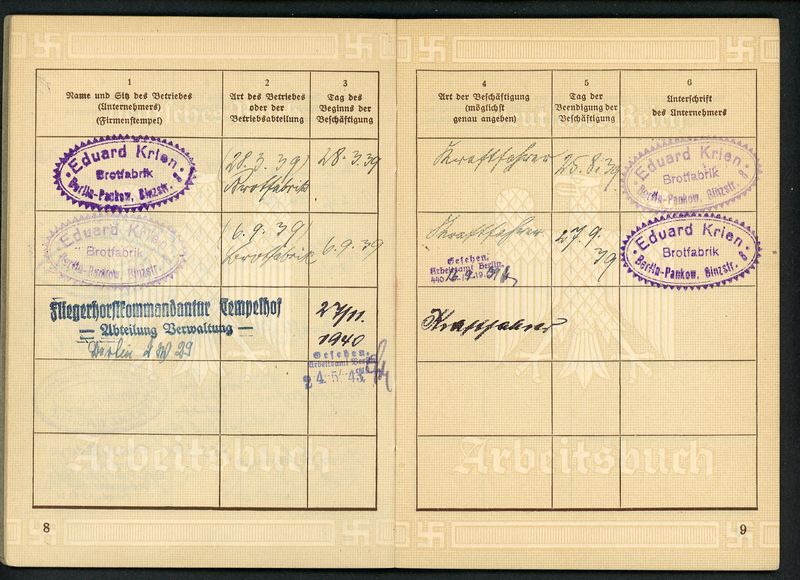 1
Name und Sitz des Betriebes
(Unternehmers)
(Firmenstempel)
2
Art des Betriebes
oder der
Betriebsabteilung
3
Tag des
Beginns der
Beschäftigung
Eduard Krien
Brotfabrik
Berlin-Pankow, Binzstr. 8
(28.3.39)
Brotfabrik
28.3.39
Eduard Krien
Brotfabrik
Berlin-Pankow, Binzstr.
(6.9.39)
Brotfabrik
6.9.39
Fliegerhorstkommandantur Tempelhof
— Abteilung Verwaltung —
Berlin SW 29
27/11.
1940
Gesehen.
Arbeitsamt Berlin
24.5.43
Arbeitsbuch
8
4
Art der Beschäftigung
(möglichst
genau angeben)
5
Tag der
Beendigung der
Beschäftigung
6
Unterschrift
des Unternehmers
Kraftfahrer
25.8.39
Eduard Krien
Brotfabrik
Berlin-Pankow, Binzstr. 8
Kraftfahrer
27.9.
39
Eduard Krien
Brotfabrik
Berlin-Pankow, Binzstr. 8
Gesehen.
Arbeitsamt Berlin.
Kraftfahrer
Arbeitsbuch
9